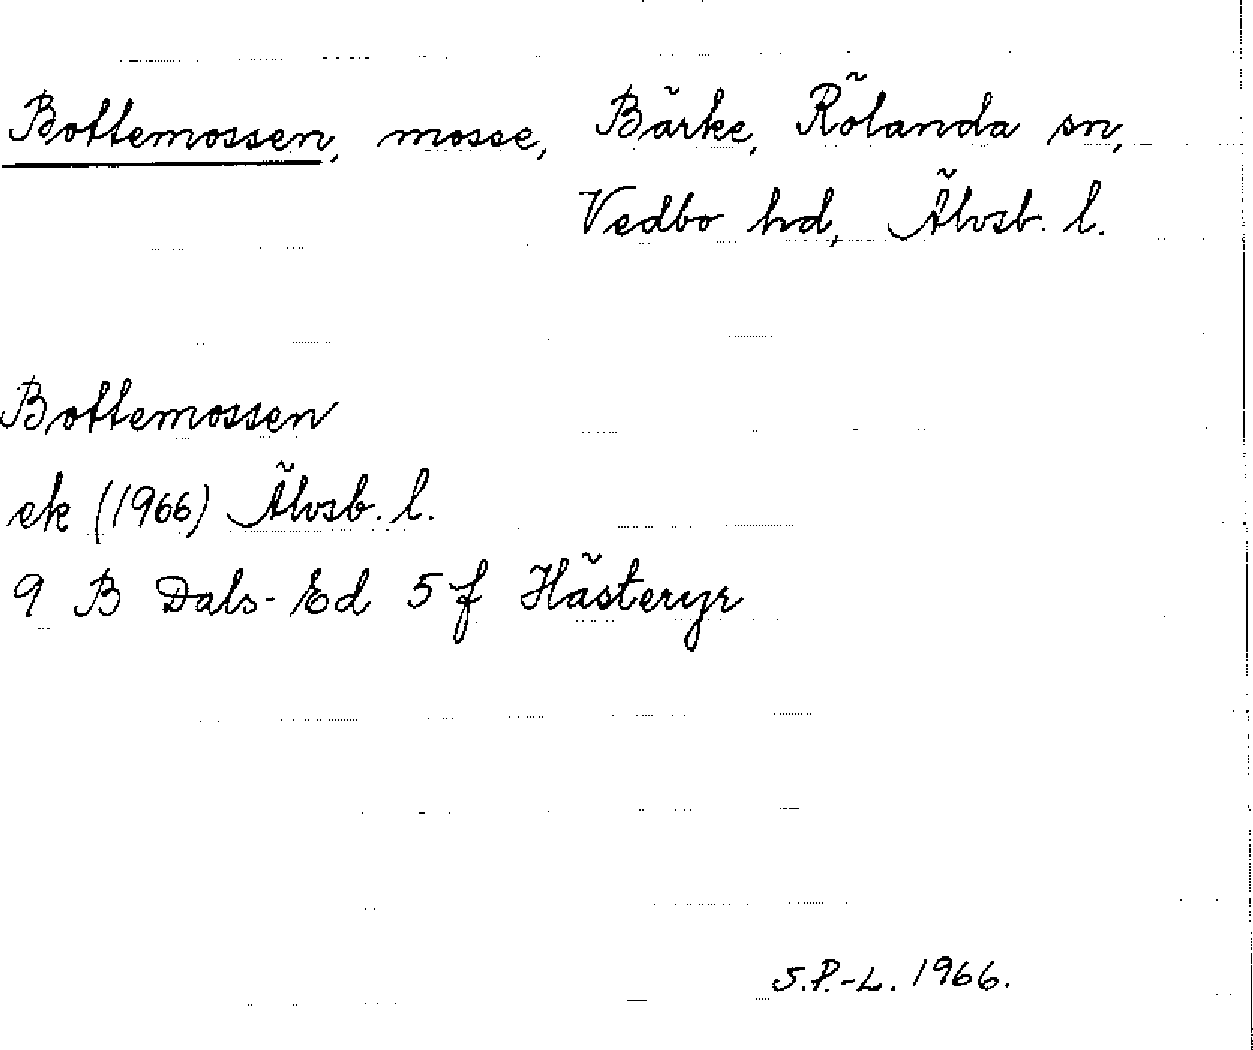 Bottemossen, mosse, Bärke, Rölanda sn,
Vedbo hd, Älvsb. l.
Bottemossen
ek (1966) Älvsb. l.
9 B Dals-Ed 5 f Hästeryr
S.P.-L. 1966.